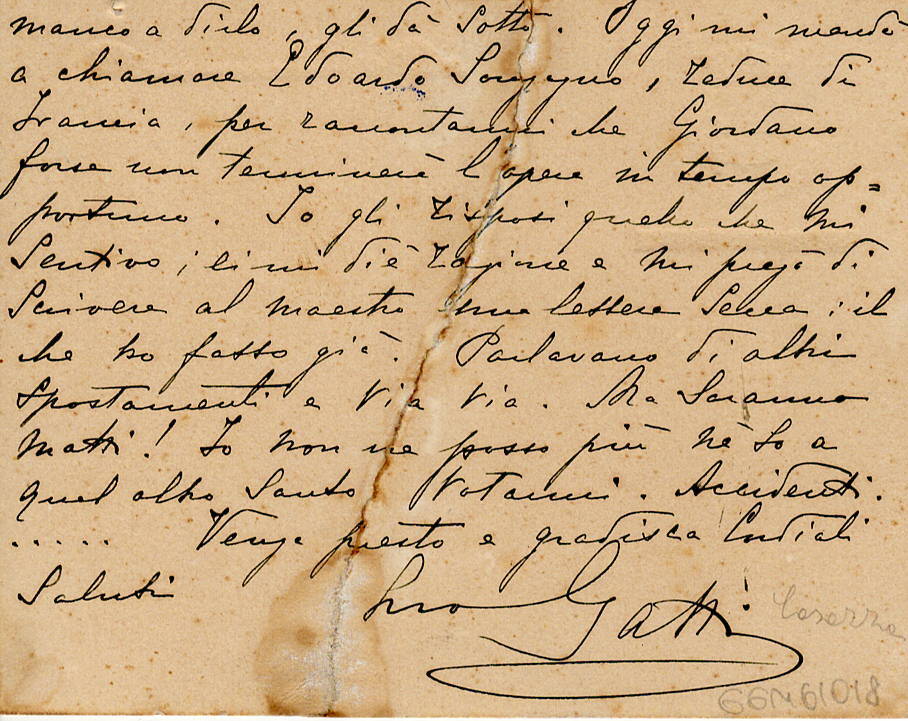 manco a dirlo, gli dà sotto. Oggi mi mandò
a chiamare Edoardo Sonzogno, reduce di
Francia, per raccontarmi che Giordano
forse non terminerà l'opera in tempo op=
portuno. Io gli risposi quello che mi
sentivo; ei mi diè ragione e mi pregò di
scrivere al maestro una lettera seria; il
che ho fatto già. Parlavano di altri
spostamenti e via via. Ma saranno
matti! Io non ne posso più nè so a
qual altro santo votarmi. Accidenti.
..... Venga presto e gradisca cordiali
saluti
Suo Gatti
Casazza
GGM61018